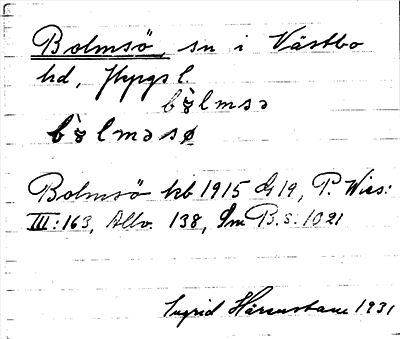 Bolmsö, sn i Västbo
hd, Jkpgs l.
bòlmsə
bòlməsø
Bolmsö kb 1915 G 19, P. Wies:
III:163, Allv. 138, Sm B. s. 1021
Ingrid 1931